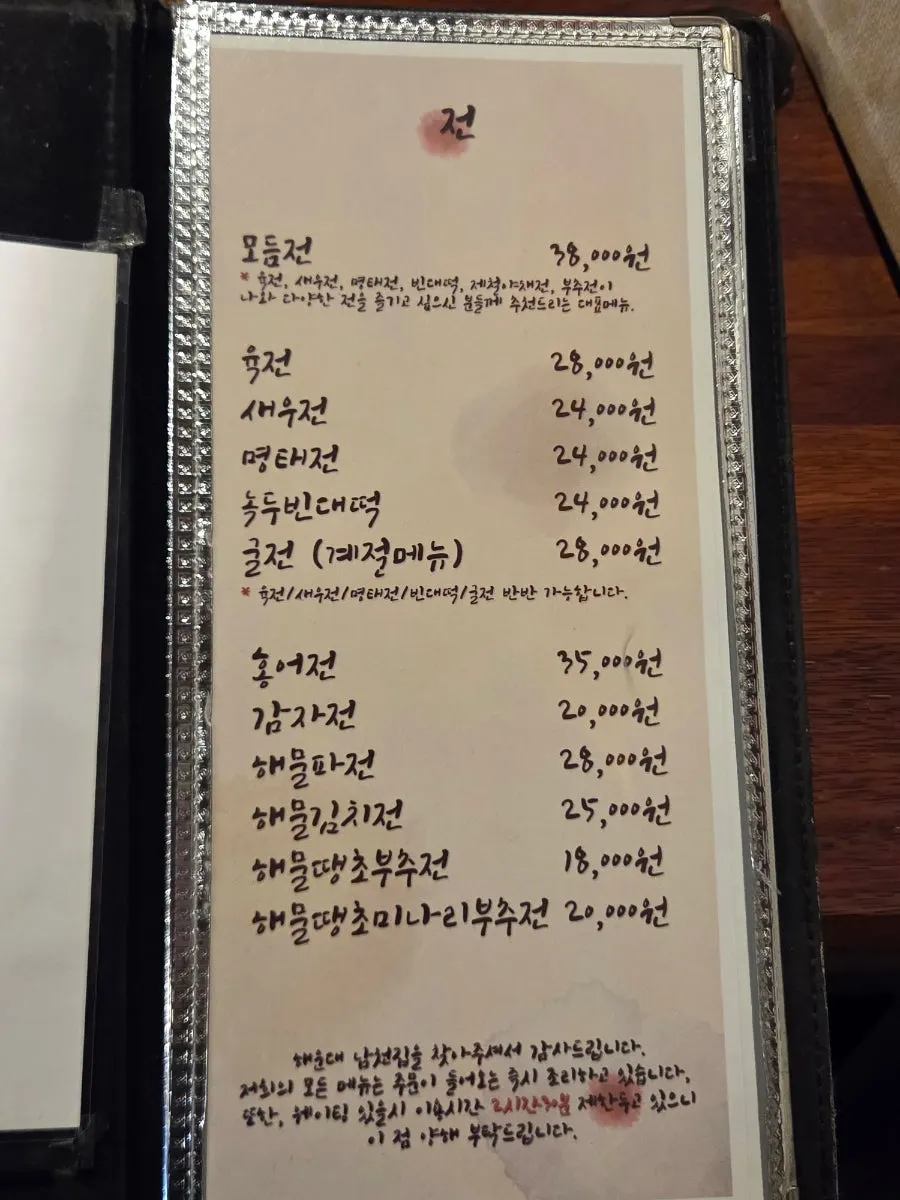 전
모듬전 38,000원
* 육전, 새우전, 명태전, 빈대떡, 제철야채전, 부추전이
나와 다양한 전을 즐기고 싶으신 분들께 추천드리는 대표메뉴.
육전 28,000원
새우전 24,000원
명태전 24,000원
녹두빈대떡 24,000원
굴전 (계절메뉴) 28,000원
* 육전/새우전/명태전/빈대떡/굴전 반반 가능합니다.
홍어전 35,000원
감자전 20,000원
해물파전 28,000원
해물김치전 25,000원
해물땡초부추전 18,000원
해물땡초미나리부추전 20,000원
해운대 남천집을 찾아주셔서 감사드립니다.
저희의 모든 메뉴는 주문이 들어오는 즉시 조리하고 있습니다.
또한, 웨이팅 있을시 이용시간 2시간30분 제한두고 있으니
이 점 양해 부탁드립니다.